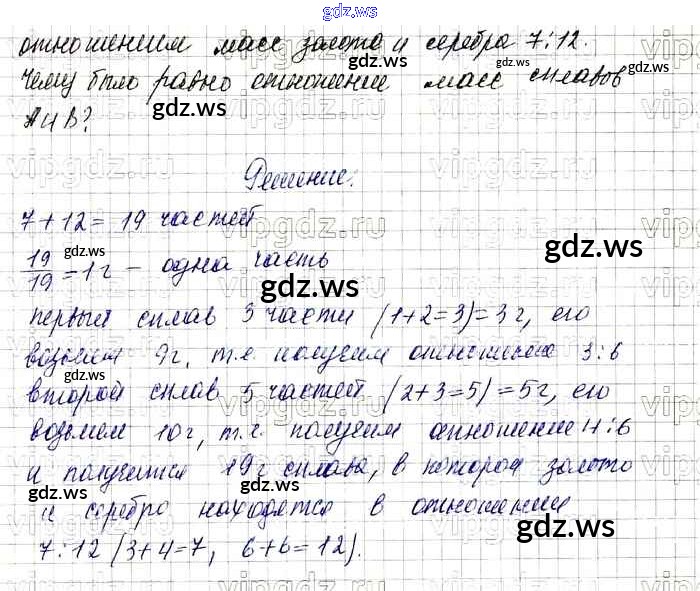 gdz.ws
отношении масс золота и серебра 7:12.
Чему было равно отношение масс сплавов
А и В?
Решение.
7+12=19 частей
19/19=1г – одна часть
первый сплав 3 части (1+2=3)=3г, его
возьмем 9г, т.е. получим отношение 3:6
второй сплав 5 частей (2+3=5)=5г, его
возьмем 10г, т.е. получим отношение 4:6
и получится 19г сплава, в котором золото
и серебро находятся в отношении
7:12 (3+4=7, 6+6=12).